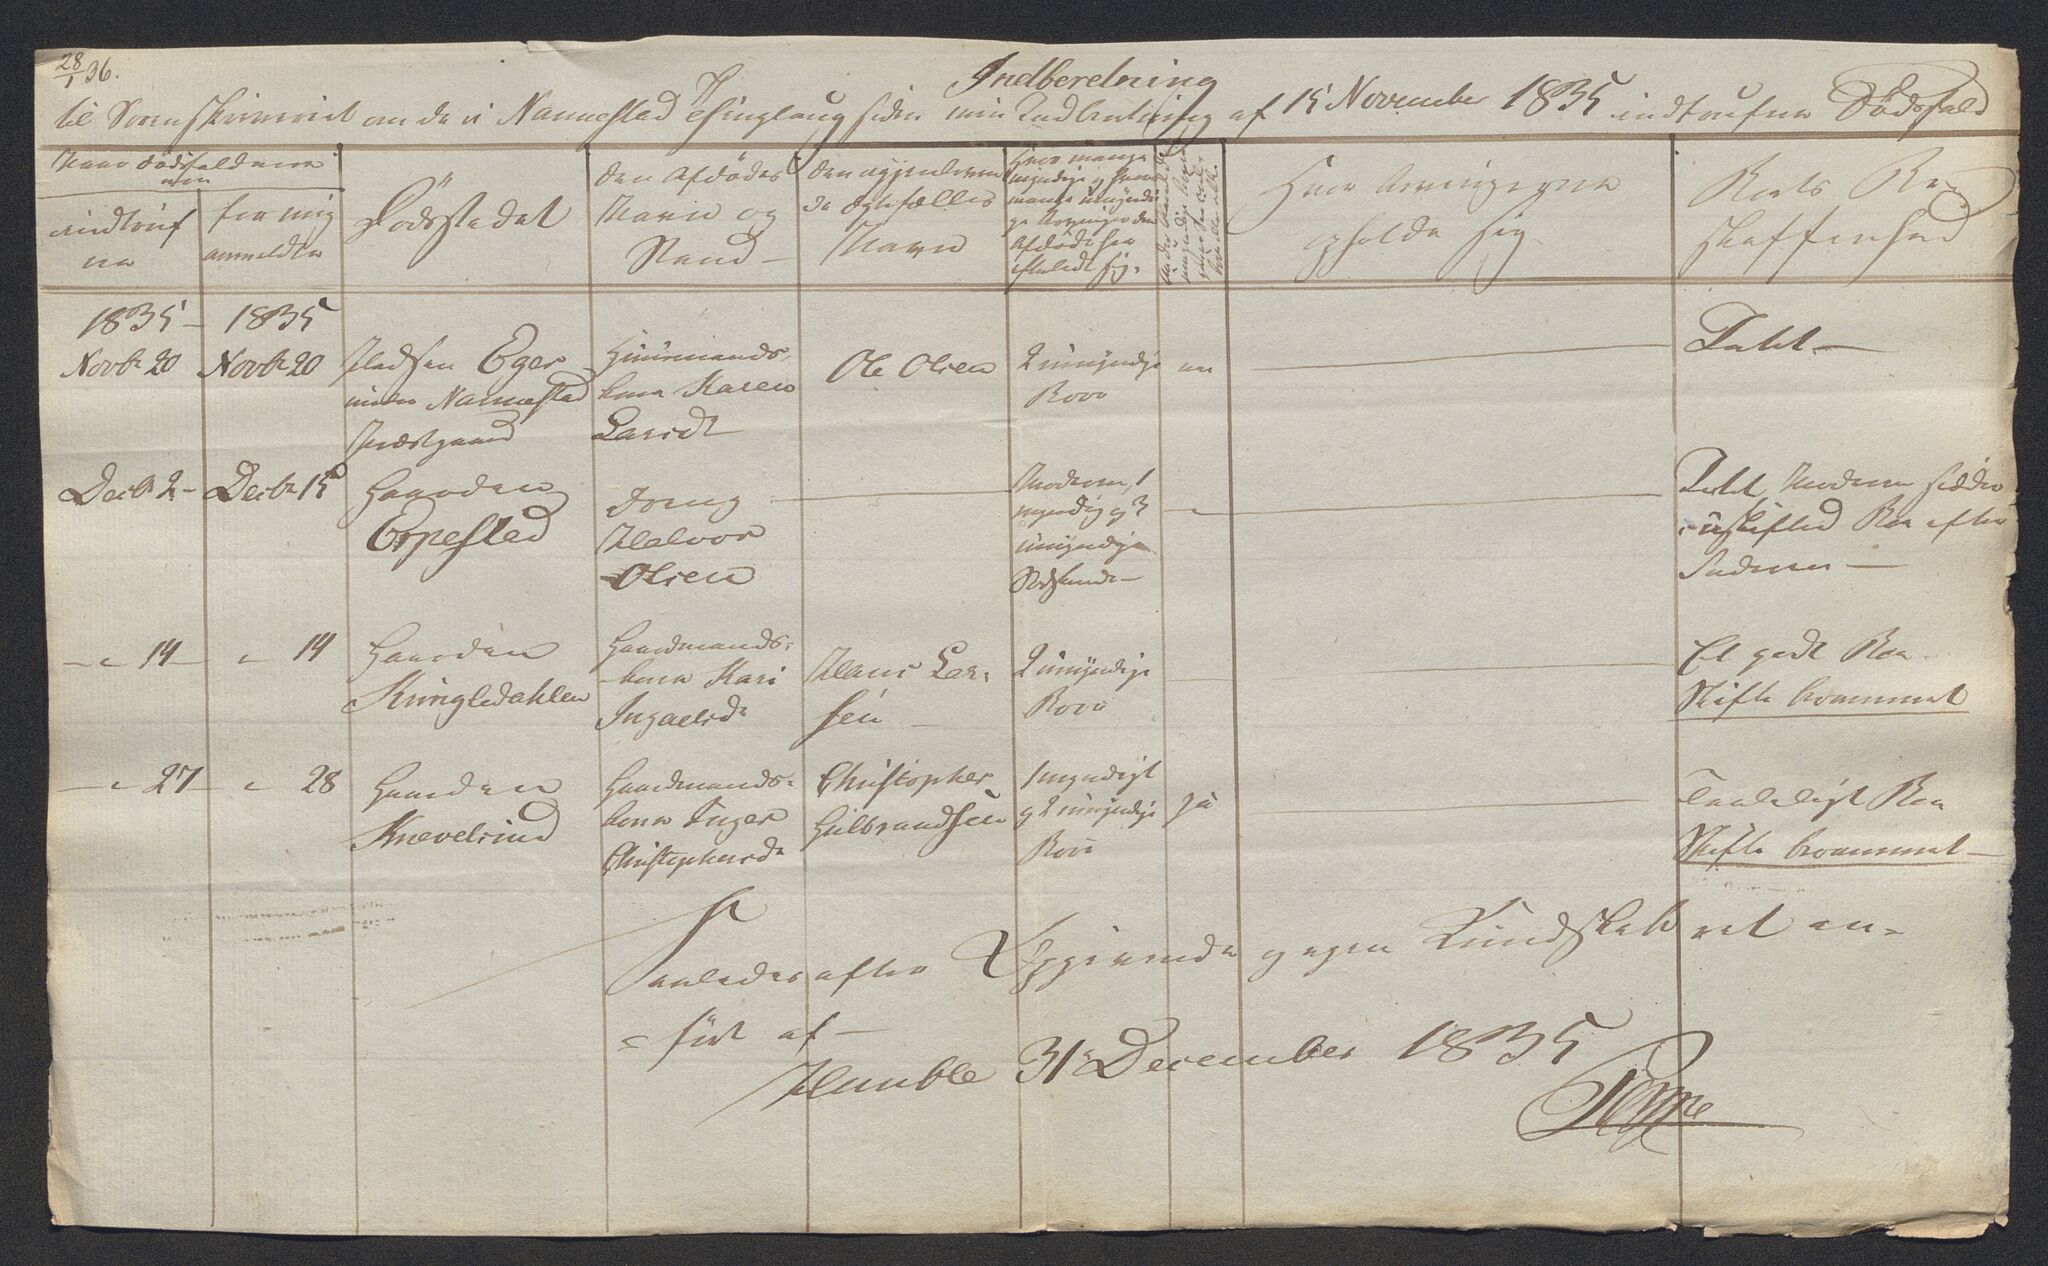 28/1 36.
Indberetning
til Sorenskriveriet om de i Nannestad Thinglaug siden min Indberetning af 15 November 1835 indtrufne Dødsfald
Naar Dødsfaldene
ere
indtruf
ne
for mig
anmeldte
Dødsstedet
Den Afdødes
Navn og
Stand
Den igjenlevende
Ægtefælles
Navn
Hvor mange
myndige og hvor
mange umyndi
ge Arvinger den
Afdøde har
efterladt sig.
Hvor Arvingerne
opholde sig
Boets Be
skaffenhed
1835 - 1835
Novbr 20 Novbr 20
Pladsen Eger
under Nannestad
Præstgaard
Huusmands
kone Karen
Larsdt
Ole Olsen
2 umyndige
Børn
Fatit
Decbr 2 - Decbr 15
Gaarden
Erpestad
Dreng
Halvor
Olsen
Moderen, 1
myndig og 3
umyndige
Sødskende
Fatit, Moderen sidder
i uskiftet Boe efter
Faderen
- " 14 " 14
Gaarden
Kringledahlen
Gaardmands
kone Kari
Ingaelsdr
Hans Lar-
sen
2 umyndige
Børn
Et godt Boe
Skifte berammet
- " 27 " 28
Gaarden
Knevelsrud
Gaardmands
kone Inger
Christophersdr
Christopher
Gulbrandsen
1 myndigt
og 2 umyndige
Børn
ja
Taaleligt Boe
Skifte berammet
Saaledes efter Opgivende og egen Kundskab ret an-
ført af
Humble 31 December 1835